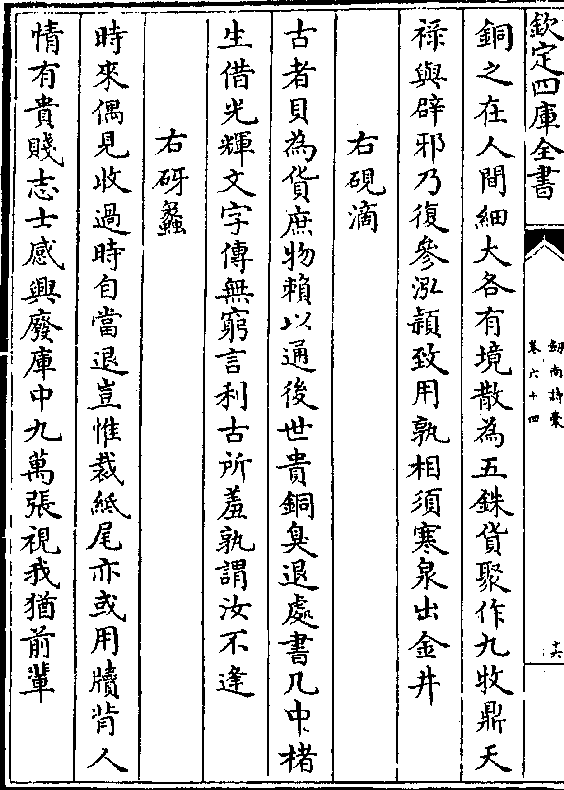 欽定四庫全書
劔南詩稾
卷六十四
十六
銅之在人間細大各有境散為五銖貨聚作九牧鼎天
祿與辟邪乃復參泓穎致用孰相須寒泉出金井
右硯滴
古者貝為貨庶物賴以通後世貴銅臭退處書几中楮
生借光輝文字傳無窮言利古所羞孰謂汝不逢
右砑蠡
時來偶見收過時自當退豈惟裁紙尾亦或用牘背人
情有貴賤志士感興廢庫中九萬張視我猶前輩